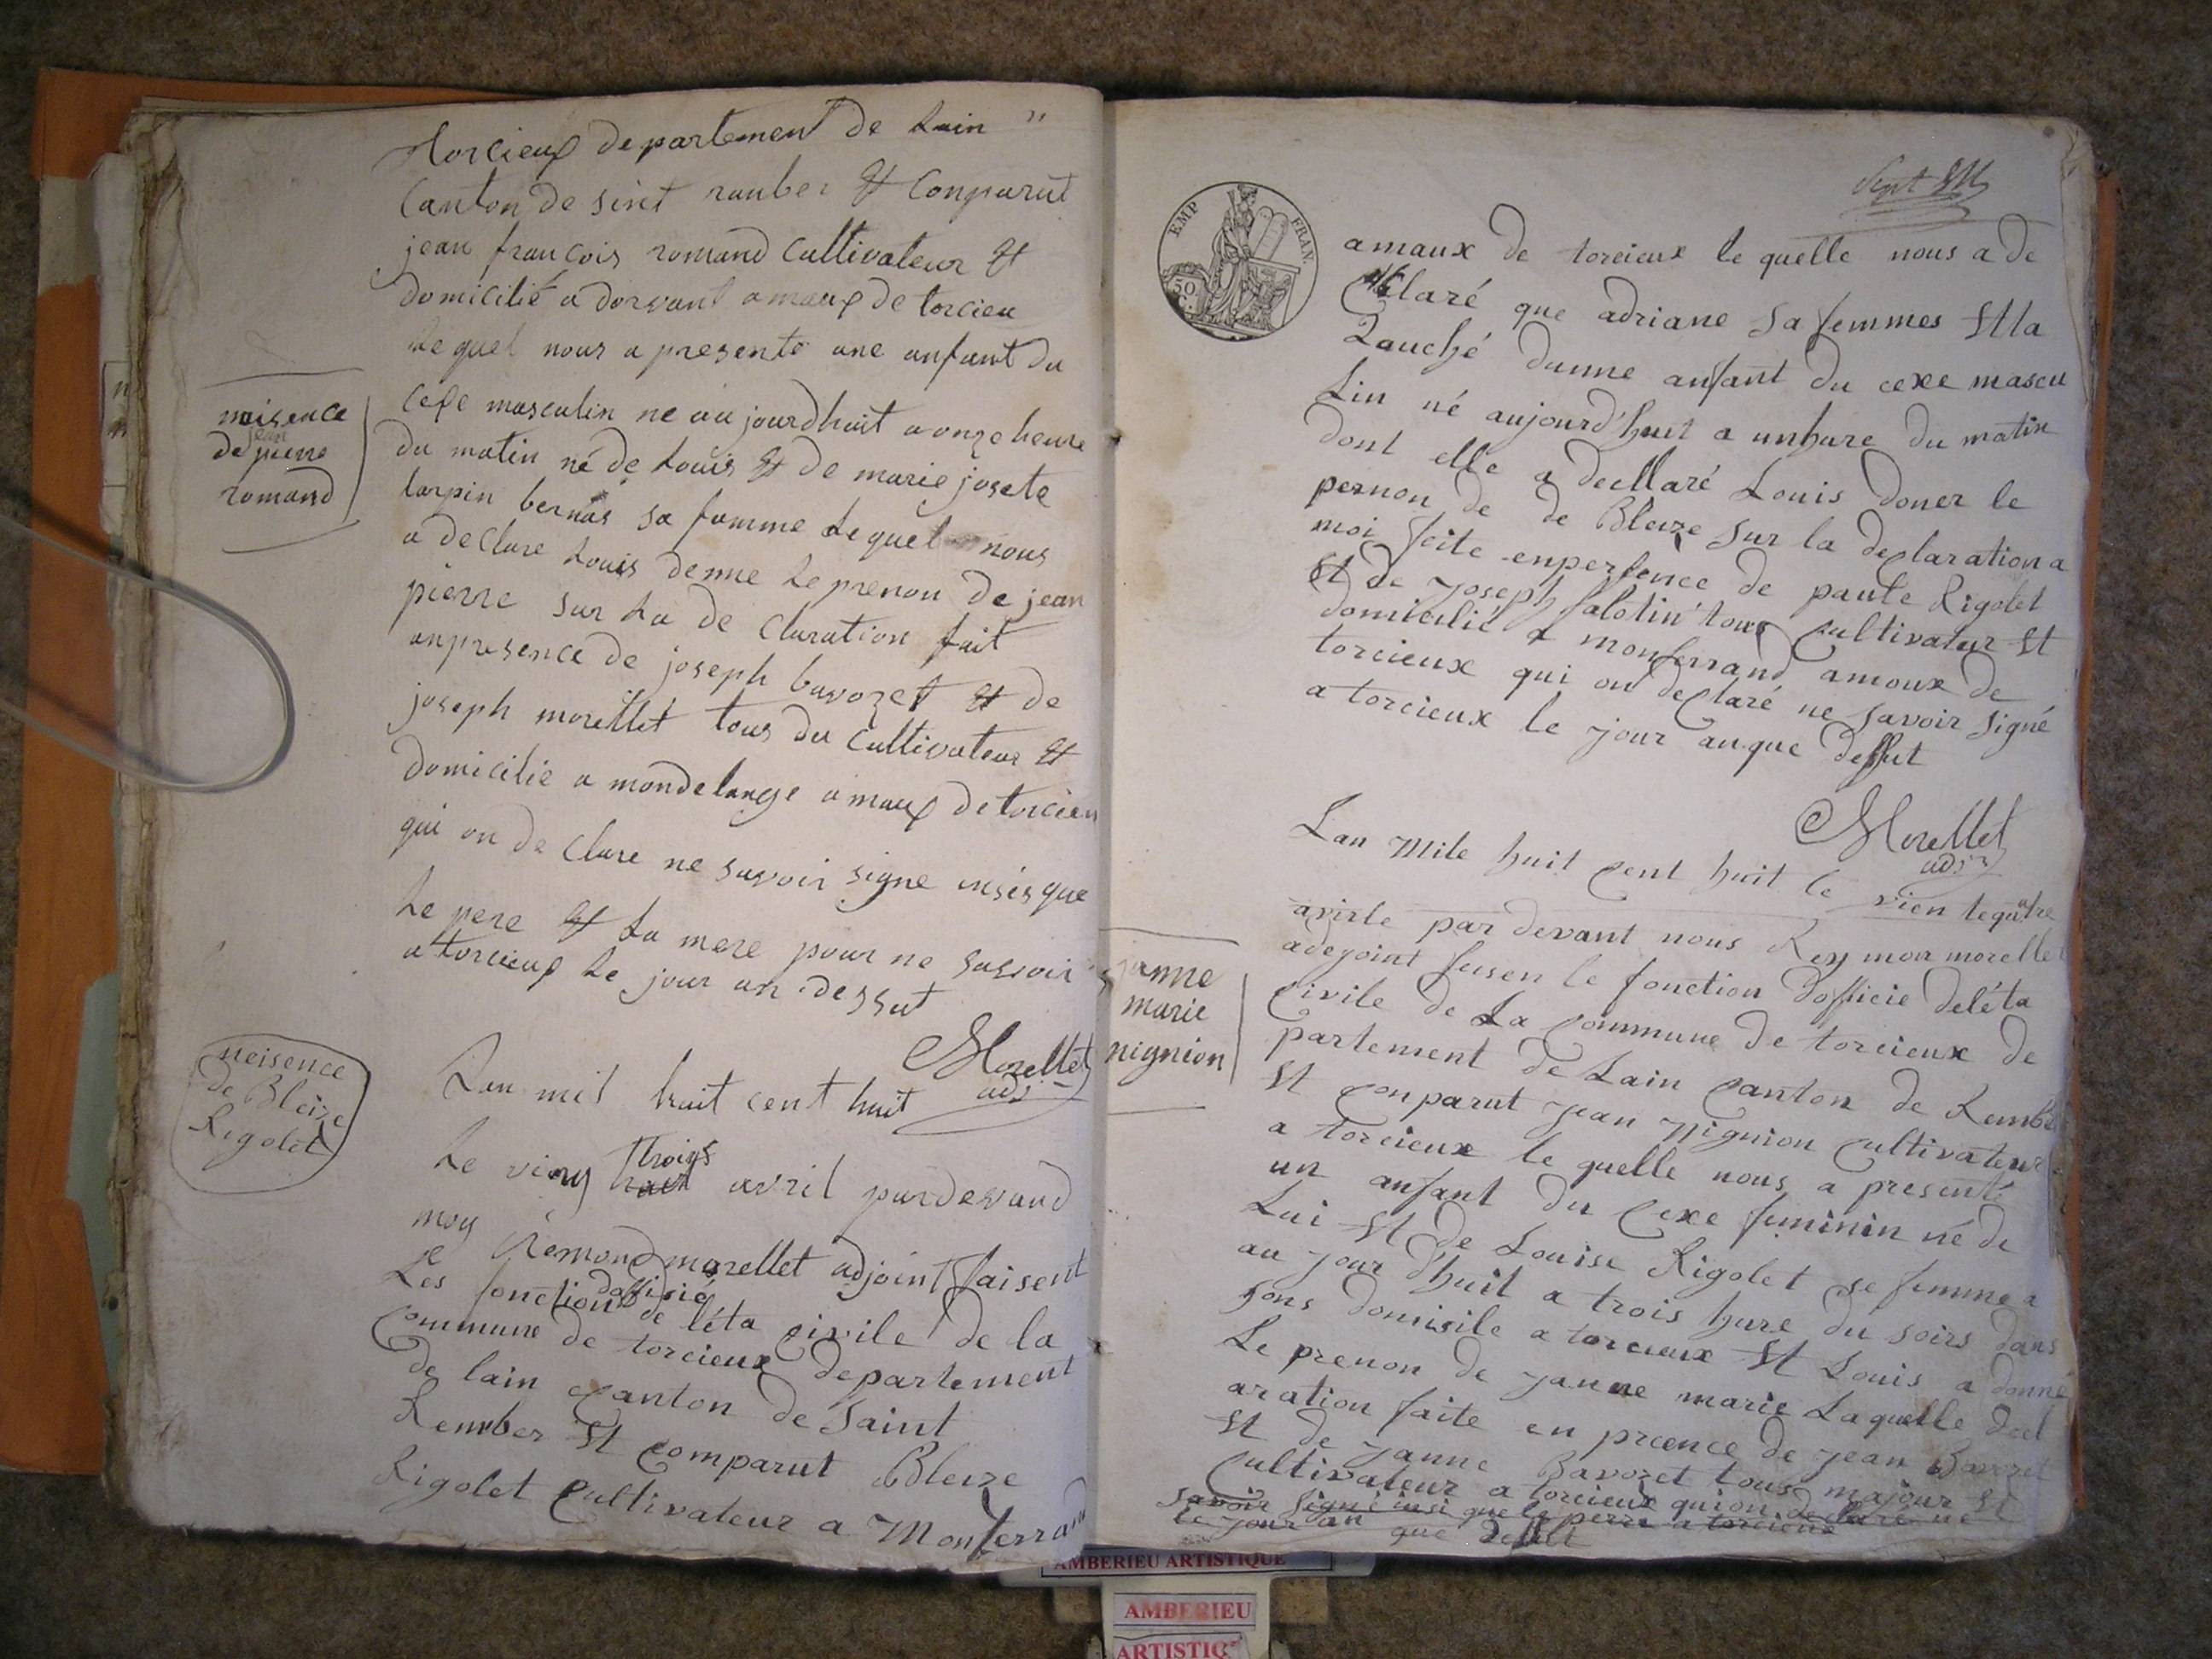 torcieux departement de Lain "
Canton de sint ranber et Conparut
jean francois romand Cultivateur et
domicilié a dorvant amaux de torcieu
Le quel nous a presenté une anfant du
cexe masculin ne aujourdhuit a onze heure
du matin né de Louis et de marie josete
tarpin bernas sa famme Le quel nous
a declare Louis denne Le prenon de jean
pierre sur La de Claration fait
anpresence de joseph bavozet et de
joseph morellet tous du Cultivateur et
domicilie a mondelange amaux de torcieu
qui on de Clare ne savoir signe insis que
Le pere et La mere pour ne savoir
a torcieux Le jour an dessut
Morellet
adj
naisence
jean
de pierre
romand
neisence
de Bleize
Rigolet
Lan mil huit cent huit
Le ving huit troigs avril pardevand
moy Remond morellet adjoint faisent
Les fonction doffisié de léta civile de la
commune de torcieux departement
de lain Canton de Saint
Rember et Comparut Bleize
Rigolet Cultivateur a Monferrand
EMP FRAN.
50
C.
Sept
amaux de torcieux le quelle nous a de
Claré que adriane sa femmes et la
Qauché dunne anfant du cexe mascu
Lin né aujourd'huit a unhure du matin
dont elle a decllaré Louis doner le
pernon de de Bleize sur la declaration a
moi feite enpersence de paule Rigolet
et de joseph falotin tous Cultivateur et
domicilié a monferrand amoux de
torcieux qui on declaré ne savoir signé
a torcieux le jour anque dessut
Morellet
adj
janne
marie
nignion
Lan Mile huit Cent huit le vientequatre
avirle par devant nous Reymon morellet
adejoint fesen le fonction dofficie deléta
Civile de La Commune de torcieux de
partement de Lain Canton de Rember
et Conparut jean Nignion Cultivateur
a torcieux le quelle nous a presenté
un anfant du Cexe feminin né de
Lui et de Louise Rigolet se femme a
au jour d'huit a trois hure du soirs dans
sons domisile a torcieux et Louis a donné
Le prenon de janne marie Laquelle decl
aration faite en precence de jean Bavozet
et de janne Bavozet tous majour et
Cultivateur a torcieux quion declaré ne
savoir signé insi que le perre a torcieux
le jour an que dessut
AMBERIEU ARTISTIQUE
AMBERIEU
ARTISTIQ